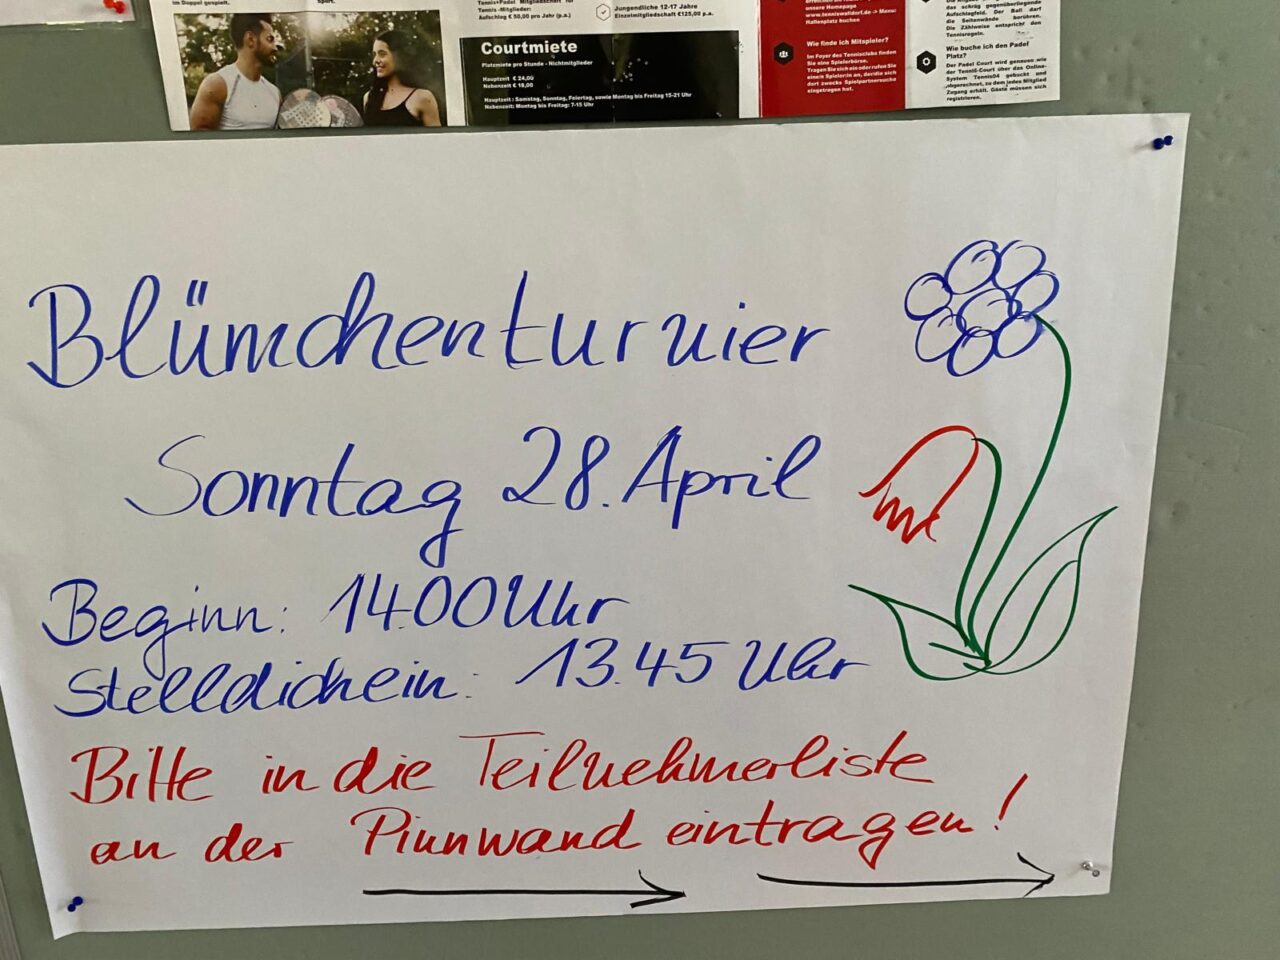 im Doppel gespielt.
Sport.
Tennis-Mitglieder:
Aufschlag € 50,00 pro Jahr (p.a.)
Jungendliche 12-17 Jahre
Einzelmitgliedschaft €125,00 p.a.
Courtmiete
Platzmiete pro Stunde - Nichtmitglieder
Hauptzeit € 24,00
Nebenzeit € 18,00
Hauptzeit: Samstag, Sonntag, Feiertag, sowie Montag bis Freitag 15-21 Uhr
Nebenzeit: Montag bis Freitag: 7-15 Uhr
unsere Homepage
www.tenniswalldorf.de -> Menu:
Hallenplatz buchen
Wie finde ich Mitspieler?
Im Foyer des Tennisclubs finden
Sie eine Spielerbörse.
Tragen Sie sich ein oder rufen Sie
einen Spieler/in an, der/die sich
dort zwecks Spielpartnersuche
eingetragen hat.
das schräg gegenüberliegende
Aufschlagfeld. Der Ball darf
die Seitenwände berühren.
Die Zählweise entspricht den
Tennisregeln.
Wie buche ich den Padel
Platz?
Der Padel Court wird genauso wie
der Tennis-Court über das Online-
System Tennis04 gebucht und
abgerechnet, zu dem jedes Mitglied
Zugang erhält. Gäste müssen sich
registrieren.
Blümchenturnier
Sonntag 28. April
Beginn: 14.00 Uhr
Stelldichein: 13.45 Uhr
Bitte in die Teilnehmerliste
an der Pinnwand eintragen!